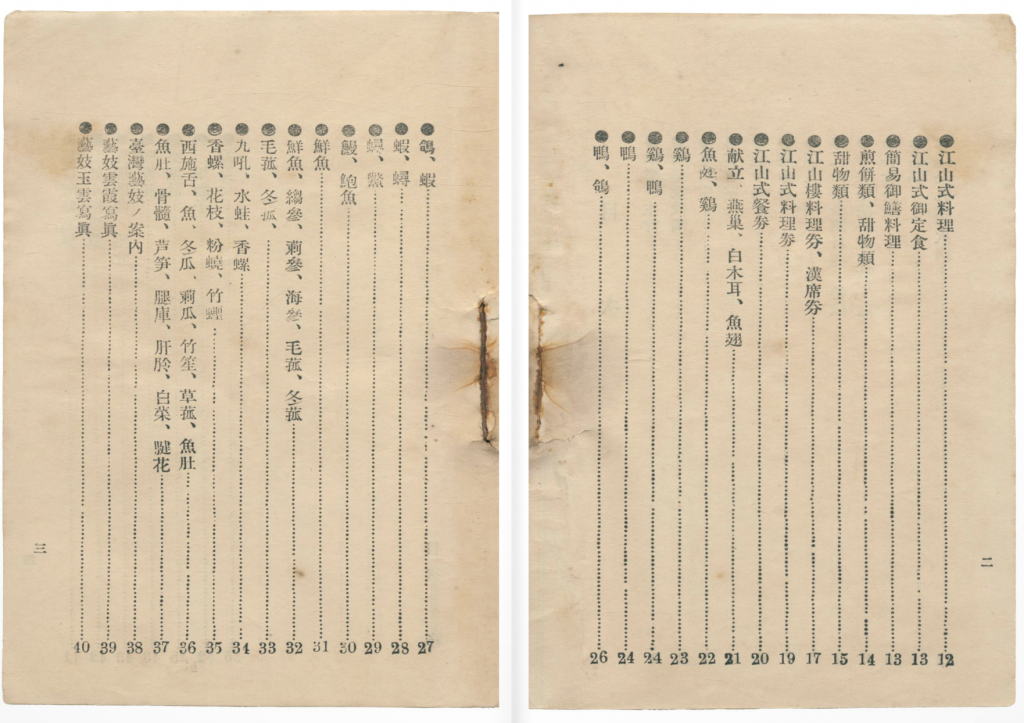 ●江山式料理 12
●江山式御定食 13
●簡易御膳料理 13
●煎餅類、甜物類 14
●甜物類 15
●江山樓料理劵、漢席劵 17
●江山式料理劵 19
●江山式餐劵 20
●献立、燕巢、白木耳、魚翅 21
●魚翅、鷄 22
●鷄 23
●鷄、鴨 24
●鴨 24
●鴨、鴿 26
二
●鴿、蝦 27
●蝦、蟳 28
●蟳、鱉 29
●鰻、鮑魚 30
●鮮魚 31
●鮮魚、縐參、莿參、海參、毛菰、冬菰 32
●毛菰、冬菰、 33
●九吼、水蛙、香螺 34
●香螺、花枝、粉蟯、竹蟶 35
●西施舌、魚、冬瓜、莿瓜、竹笙、草菰、魚肚 36
●魚肚、骨髓、芦笋、腿庫、肝肣、白菜、 37
●臺灣藝妓ノ案內 38
●藝妓雲霞寫眞 39
●藝妓玉雲寫眞 40
三